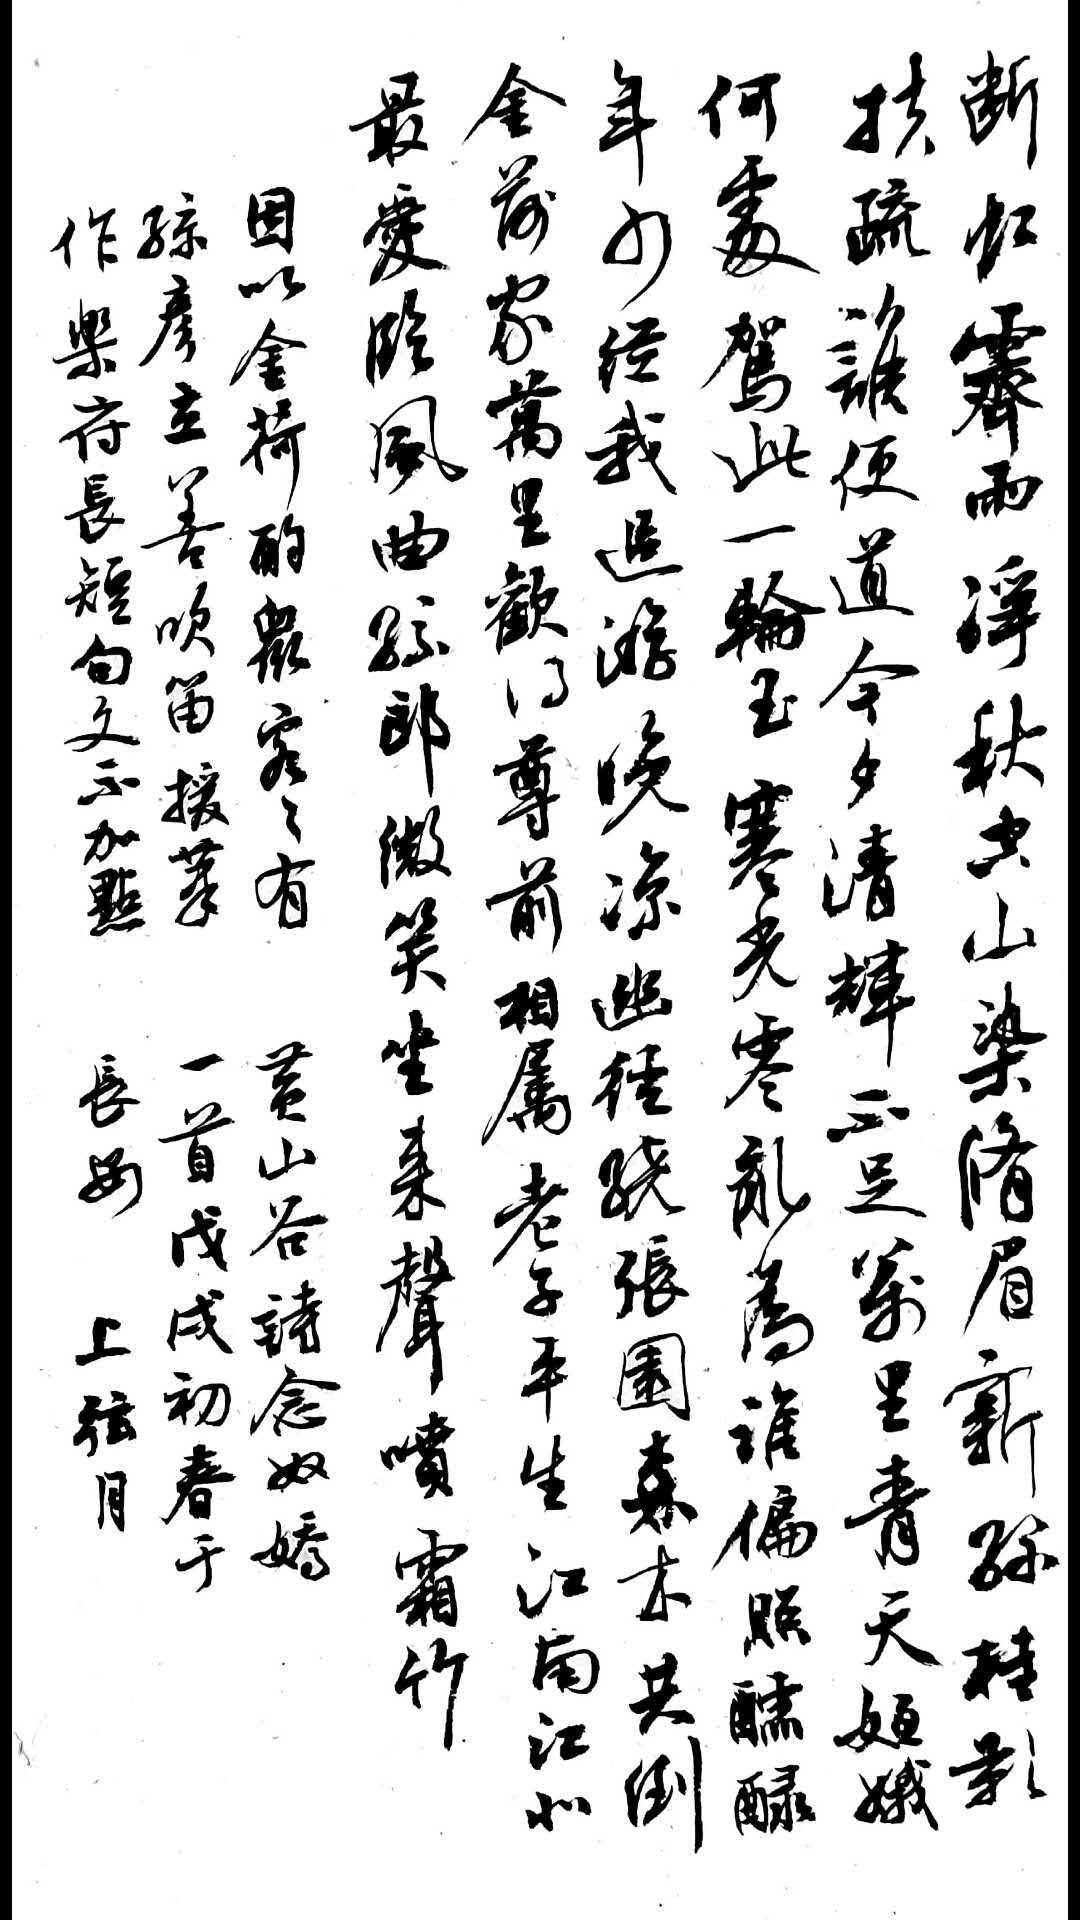 断虹霽雨淨秋空山染脩眉新綠桂影
扶疏誰便道今夕清輝不足萬里青天姮娥
何處駕此一輪玉寒光零亂為誰偏照醽醁
年少從我追遊晚涼幽徑繞張園森木共倒
金荷家萬里歡得尊前相屬老子平生江南江北
最愛臨風曲孫郎微笑坐來聲噴霜竹
因以金荷酌衆客〻有
孫彦立善吹笛援筆
作樂府長短句文不加點
黄山谷詩念奴嬌
一首戊戌初春于
長安 上弦月